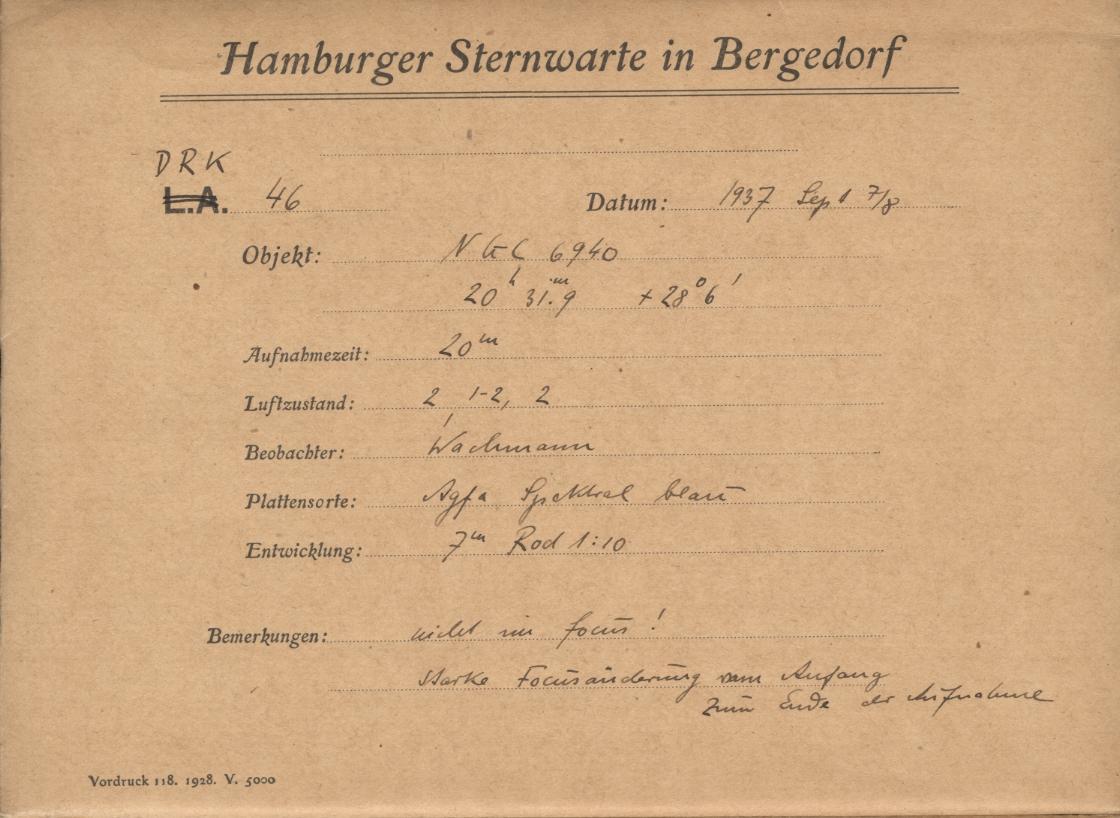 Hamburger Sternwarte in Bergedorf
DRK
L.A. 46 Datum: 1937 Sept 7/8
Objekt: NGC 6940
20h 31.m9 +28°6'
Aufnahmezeit: 20m
Luftzustand: 2 1-2, 2
Beobachter: Wachmann
Plattensorte: Agfa Spektral blau
Entwicklung: 7m Rod 1:10
Bemerkungen: nicht im focus!
starke Focusänderung vom Anfang
zum Ende der Aufnahme
Vordruck 118. 1928. V. 5000